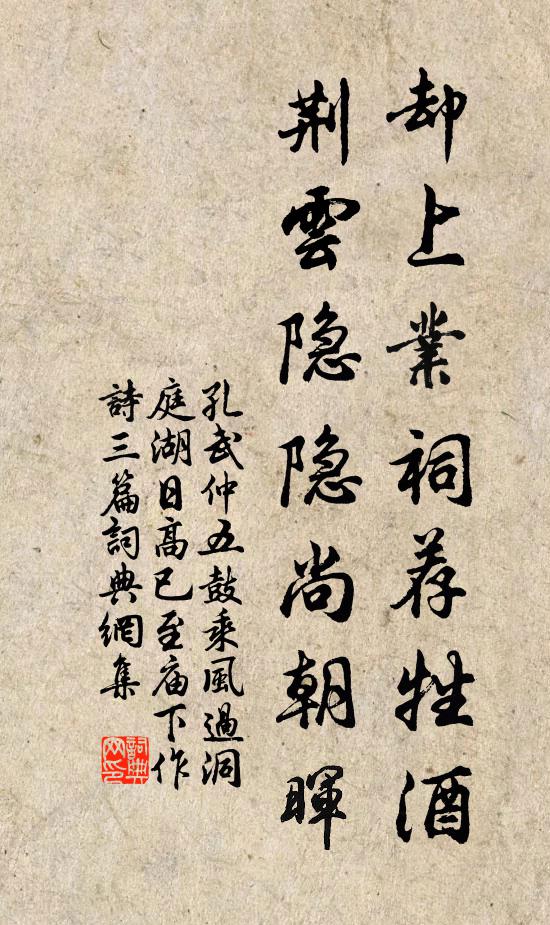 却上業祠荐牲酒
荆雲隐隐尚朝暉
孔武仲五鼓乘風過洞
庭湖日高已至庙下作
詩三篇詞典網集
詞典網印